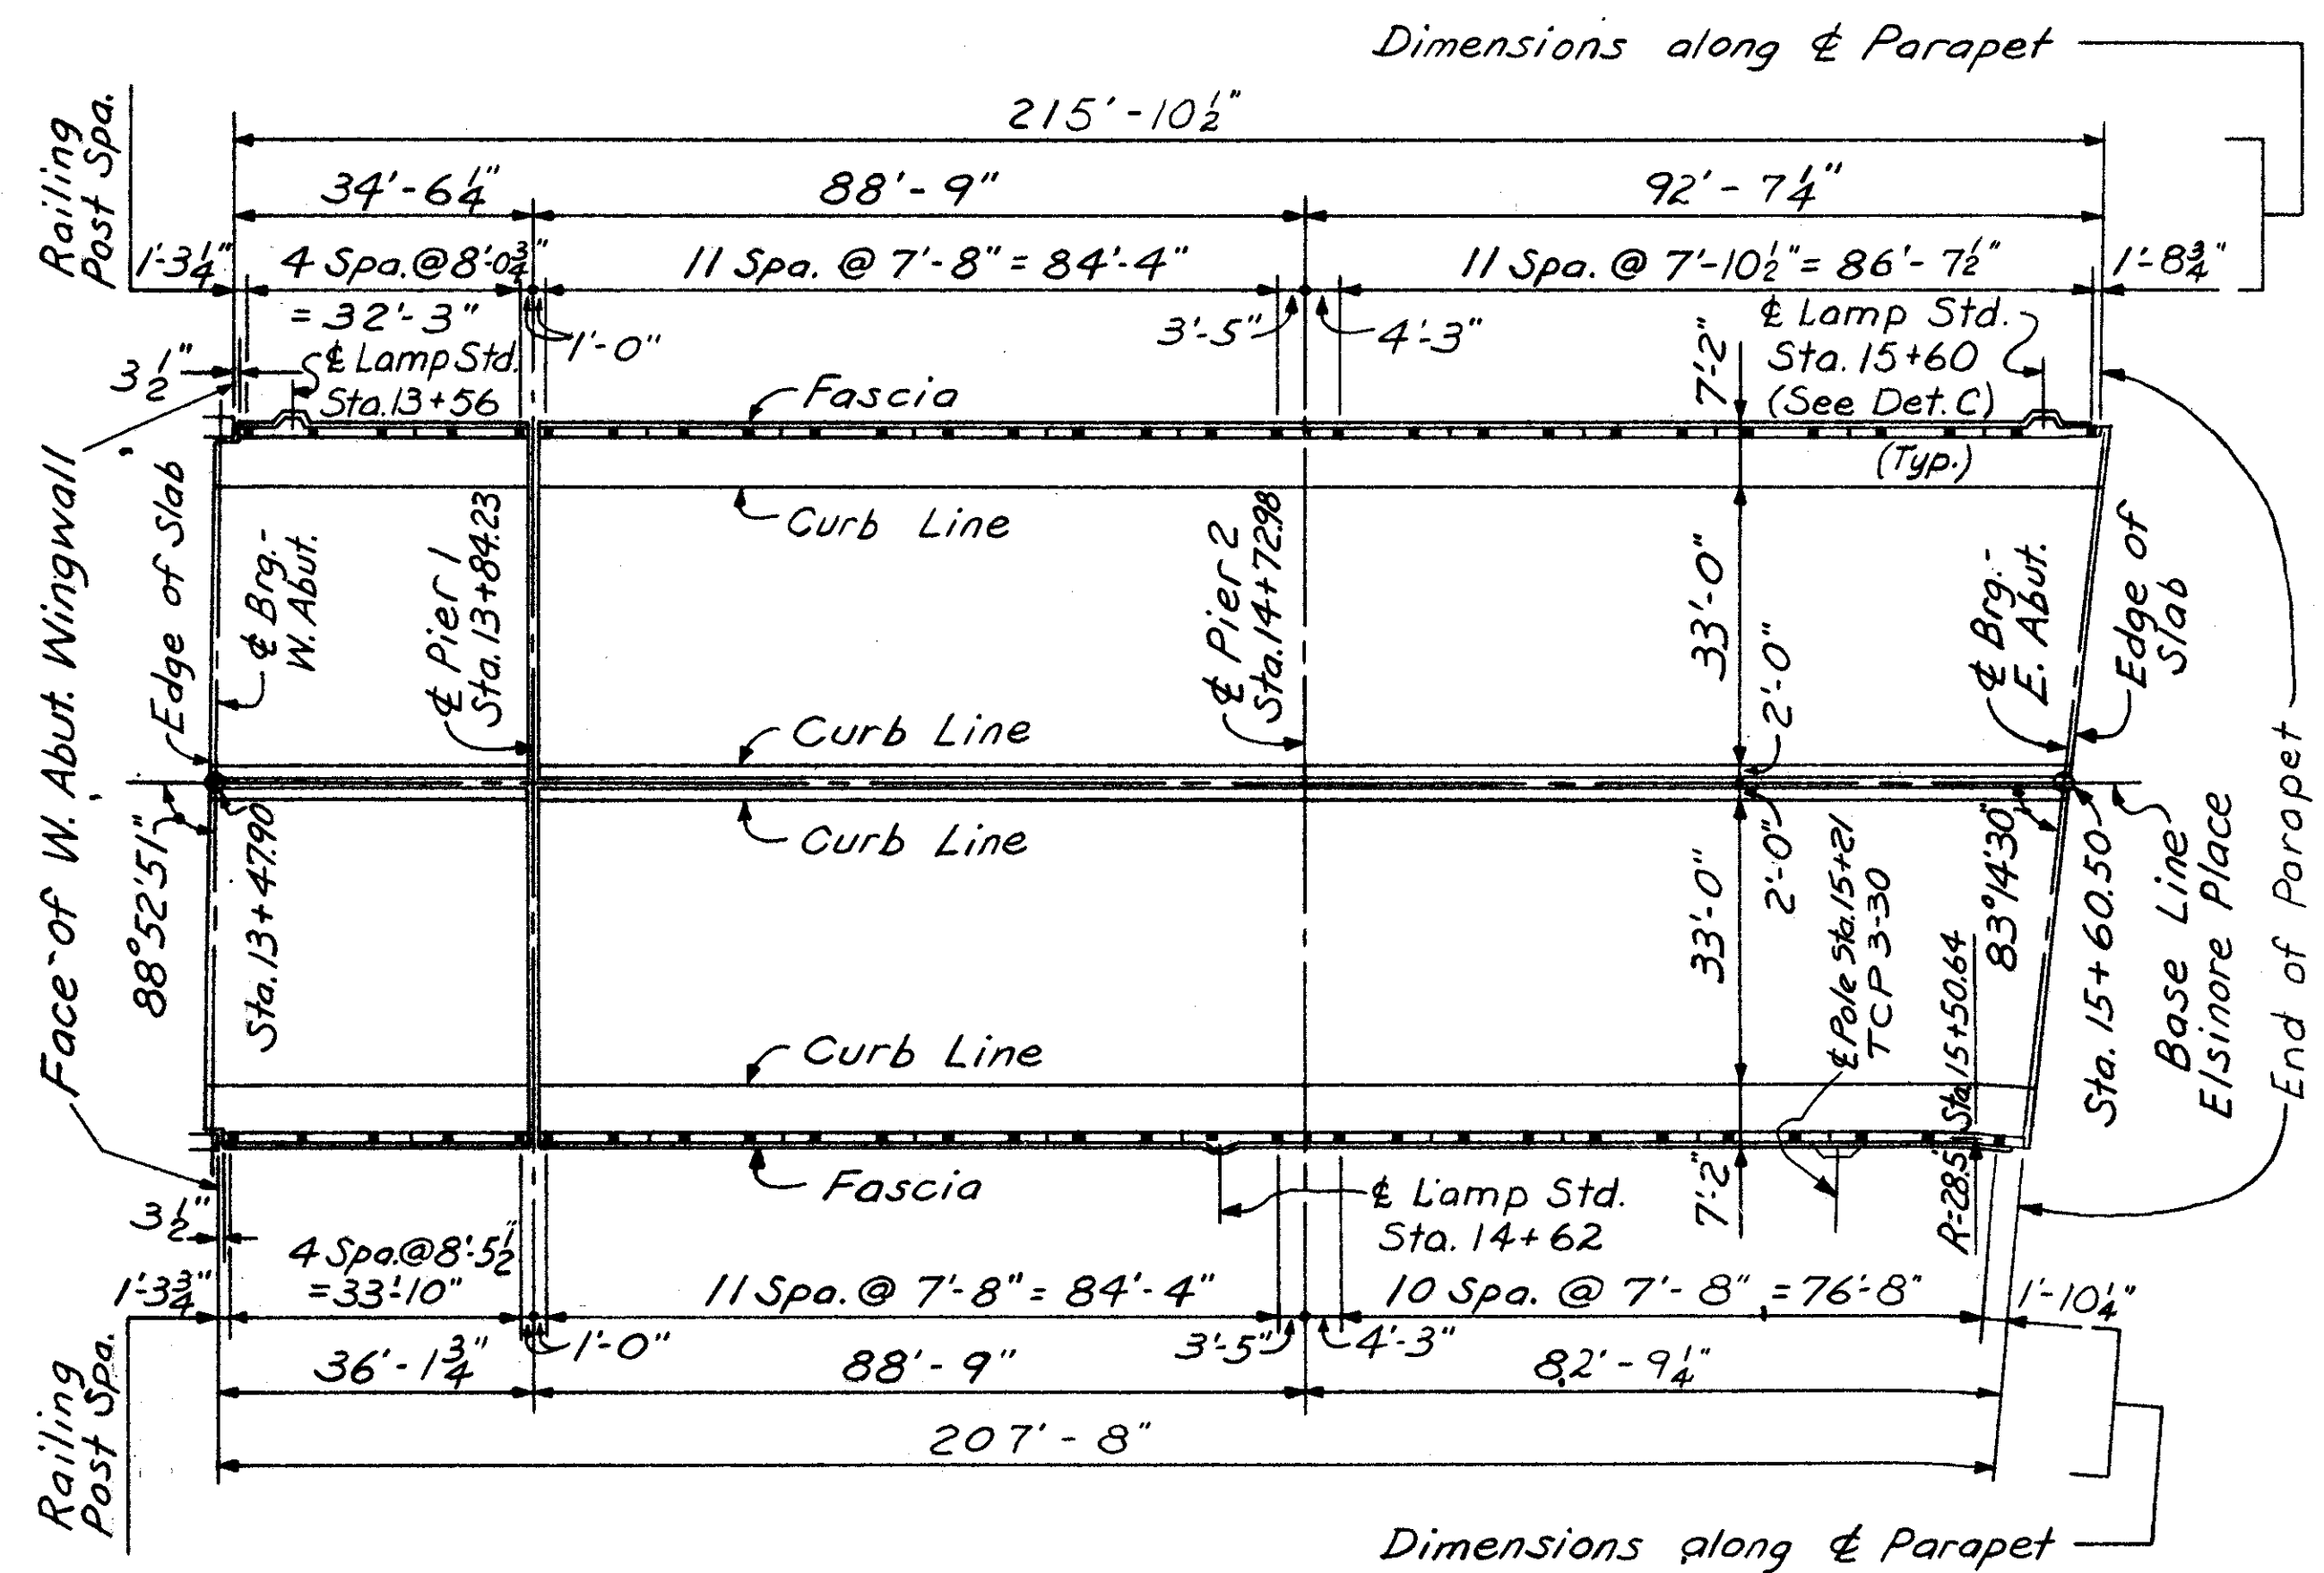 Dimensions along ℄ Parapet
Railing
Post Spa.
215'-10½"
34'-6¼"
88'-9"
92'-7¼"
1'-3¼"
4 Spa.@8'-0¾"
= 32'-3"
11 Spa. @ 7'-8" = 84'-4"
11 Spa. @ 7'-10½" = 86'-7½"
1'-8¾"
1'-0"
3'-5"
4'-3"
3½"
℄ Lamp Std.
Sta. 13+56
Fascia
7'-2"
℄ Lamp Std.
Sta. 15+60
(See Det. C)
(Typ.)
Face of W. Abut. Wingwall
Edge of Slab
℄ Brg.-
W. Abut.
℄ Pier 1
Sta. 13+84.23
Curb Line
℄ Pier 2
Sta. 14+72.98
33'-0"
2'-0"
℄ Brg.-
E. Abut.
Edge of
Slab
Curb Line
Curb Line
88°52'51"
Sta. 13+47.90
33'-0"
2'-0"
℄ Pole Sta. 15+21
TCP 3-30
Sta. 15+50.64
83°14'30"
Sta. 15+60.50
Base Line
Elsinore Place
End of Parapet
Curb Line
Fascia
7'-2"
R=28.5'
℄ Lamp Std.
Sta. 14+62
3½"
1'-3¾"
4 Spa.@8'-5½"
=33'-10"
11 Spa. @ 7'-8" = 84'-4"
10 Spa. @ 7'-8" = 76'-8"
1'-10¼"
1'-0"
3'-5"
4'-3"
36'-1¾"
88'-9"
82'-9¼"
207'-8"
Railing
Post Spa.
Dimensions along ℄ Parapet